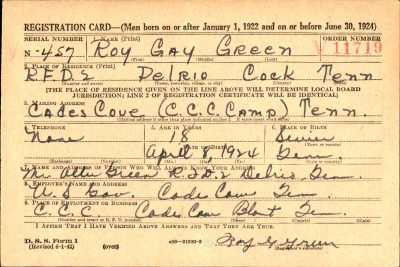 REGISTRATION CARD—(Men born on or after January 1, 1922 and on or before June 30, 1924)
SERIAL NUMBER 1. NAME (Print) ORDER NUMBER
N-457 Roy Gay Green V11719
(First) (Middle) (Last)
2. PLACE OF RESIDENCE (Print)
R.F.D.2 Delrio Cock Tenn
(Number and street) (Town, township, village, or city) (County) (State)
[THE PLACE OF RESIDENCE GIVEN ON THE LINE ABOVE WILL DETERMINE LOCAL BOARD
JURISDICTION; LINE 2 OF REGISTRATION CERTIFICATE WILL BE IDENTICAL]
3. MAILING ADDRESS
Cades Cove C.C.C. Camp Tenn.
[Mailing address if other than place indicated on line 2. If same insert word same]
4. TELEPHONE 5. AGE IN YEARS 6. PLACE OF BIRTH
None 18 Sevier
DATE OF BIRTH (Town or county)
April 8, 1924 Tenn
(Exchange) (Number) (Mo.) (Day) (Yr.) (State or country)
7. NAME AND ADDRESS OF PERSON WHO WILL ALWAYS KNOW YOUR ADDRESS
Green R.F.D.2 Delrio Tenn.
8. EMPLOYER'S NAME AND ADDRESS
U.S Gov. Cades Cove Ten.
9. PLACE OF EMPLOYMENT OR BUSINESS
C.C.C. Cades Cove Blount Ten.
(Number and street or R. F. D. number) (Town) (County) (State)
I AFFIRM THAT I HAVE VERIFIED ABOVE ANSWERS AND THAT THEY ARE TRUE.
D. S. S. Form 1
(Revised 6-1-42) (over) Roy G Green